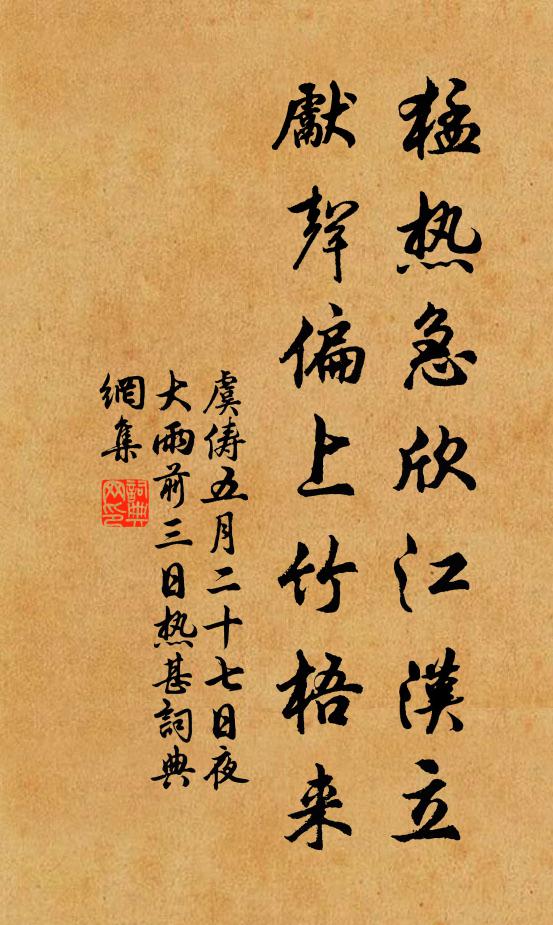 猛热急欣江漢立
獻聲偏上竹梧来
虞儔五月二十七日夜
大雨前三日热甚詞典
網集
詞典
网印